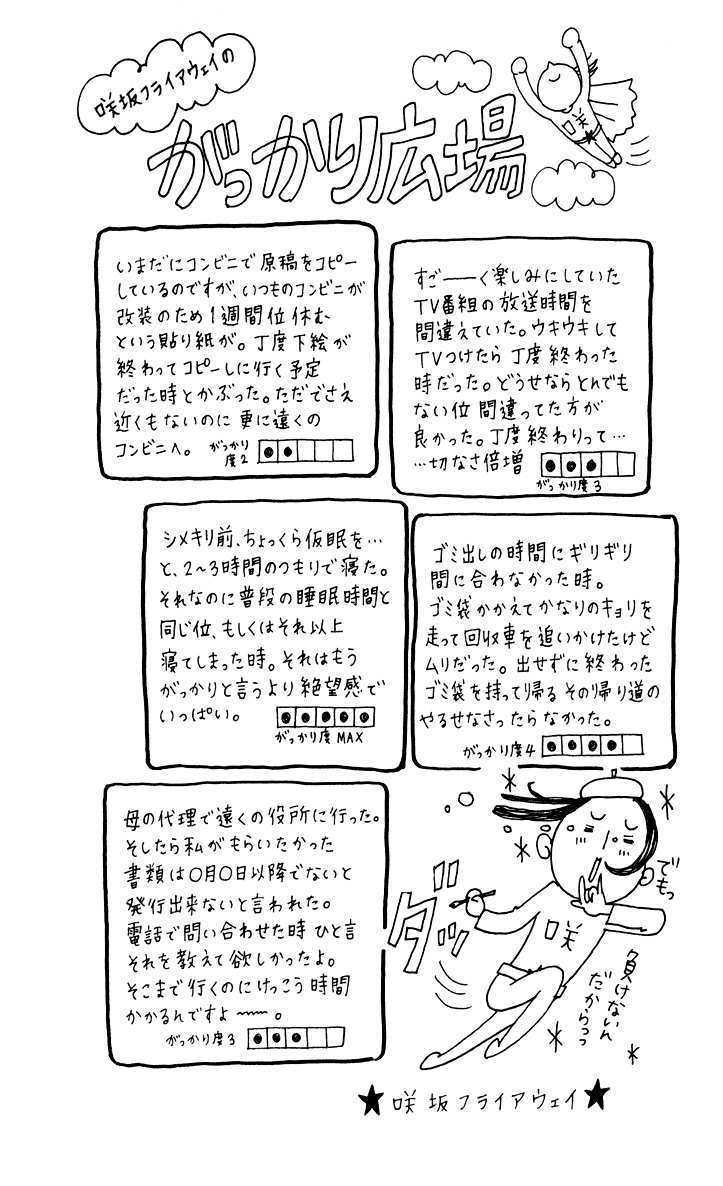 咲坂フライアウェイの
がっかり広場
咲
いまだにコンビニで原稿をコピー
しているのですが、いつものコンビニが
改装のため1週間位休む
という貼り紙が。丁度下絵が
終わってコピーしに行く予定
だった時とかぶった。ただでさえ
近くもないのに更に遠くの
コンビニへ。
がっかり
度2
すご――く楽しみにしていた
TV番組の放送時間を
間違えていた。ウキウキして
TVつけたら丁度終わった
時だった。どうせならとんでも
ない位間違ってた方が
良かった。丁度終わりって…
…切なさ倍増
がっかり度3
シメキリ前、ちょっくら仮眠を…
と、2〜3時間のつもりで寝た。
それなのに普段の睡眠時間と
同じ位、もしくはそれ以上
寝てしまった時。それはもう
がっかりと言うより絶望感で
いっぱい。
がっかり度MAX
ゴミ出しの時間にギリギリ
間に合わなかった時。
ゴミ袋かかえてかなりのキョリを
走って回収車を追いかけたけど
ムリだった。出せずに終わった
ゴミ袋を持って帰るその帰り道の
やるせなさったらなかった。
がっかり度4
母の代理で遠くの役所に行った。
そしたら私がもらいたかった
書類は〇月〇日以降でないと
発行出来ないと言われた。
電話で問い合わせた時ひと言
それを教えて欲しかったよ。
そこまで行くのにけっこう時間
かかるんですよ〜〜。
がっかり度3
ダッ
咲
でもっ
負けないん
だからっっ
★咲坂フライアウェイ★